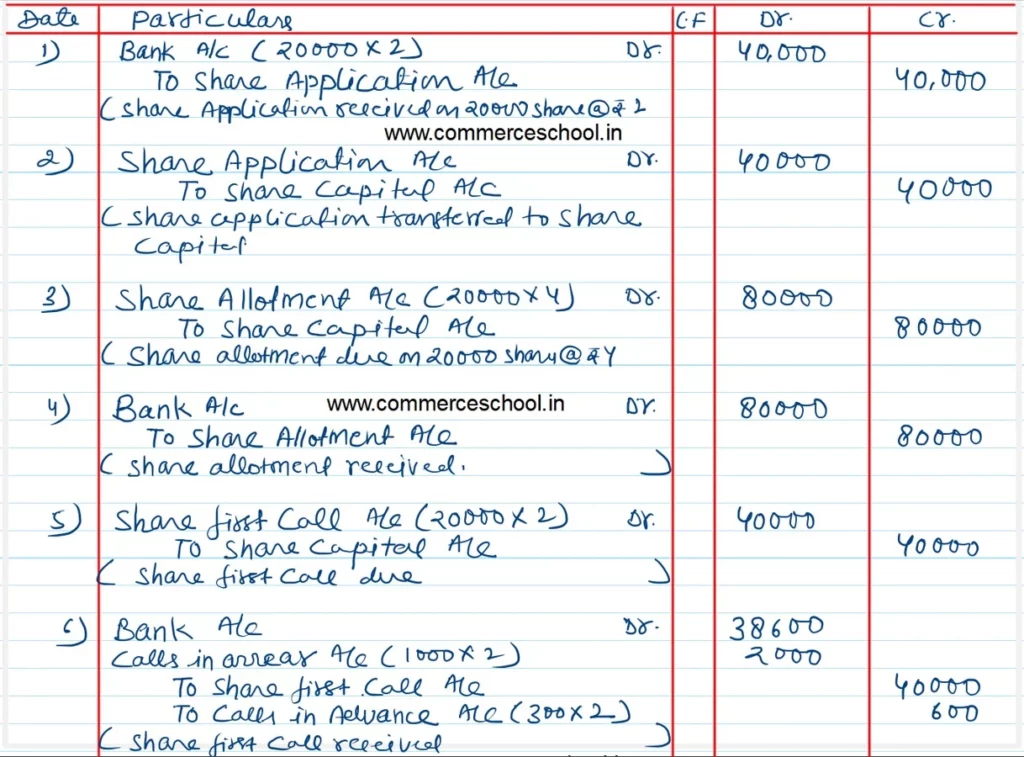 Date Particulars C.F Dr. Cr.
1) Bank A/c (20000 X 2) Dr. 40,000
To Share Application A/c 40,000
(Share Application received on 20000 share @ ₹ 2
www.commerceschool.in
2) Share Application A/c Dr. 40000
To Share Capital A/c 40000
(Share application transferred to Share
Capital
3) Share Allotment A/c (20000 X 4) Dr. 80000
To Share Capital A/c 80000
(Share allotment due on 20000 share @ ₹ 4
4) Bank A/c www.commerceschool.in Dr. 80000
To Share Allotment A/c 80000
(Share allotment received. )
5) Share first Call A/c (20000 X 2) Dr. 40000
To Share Capital A/c 40000
(Share first Call due )
6) Bank A/c Dr. 38600
Calls in arrear A/c (1000 X 2) 2000
To Share first Call A/c 40000
To Calls in Advance A/c (300 X 2) 600
(Share first Call received )